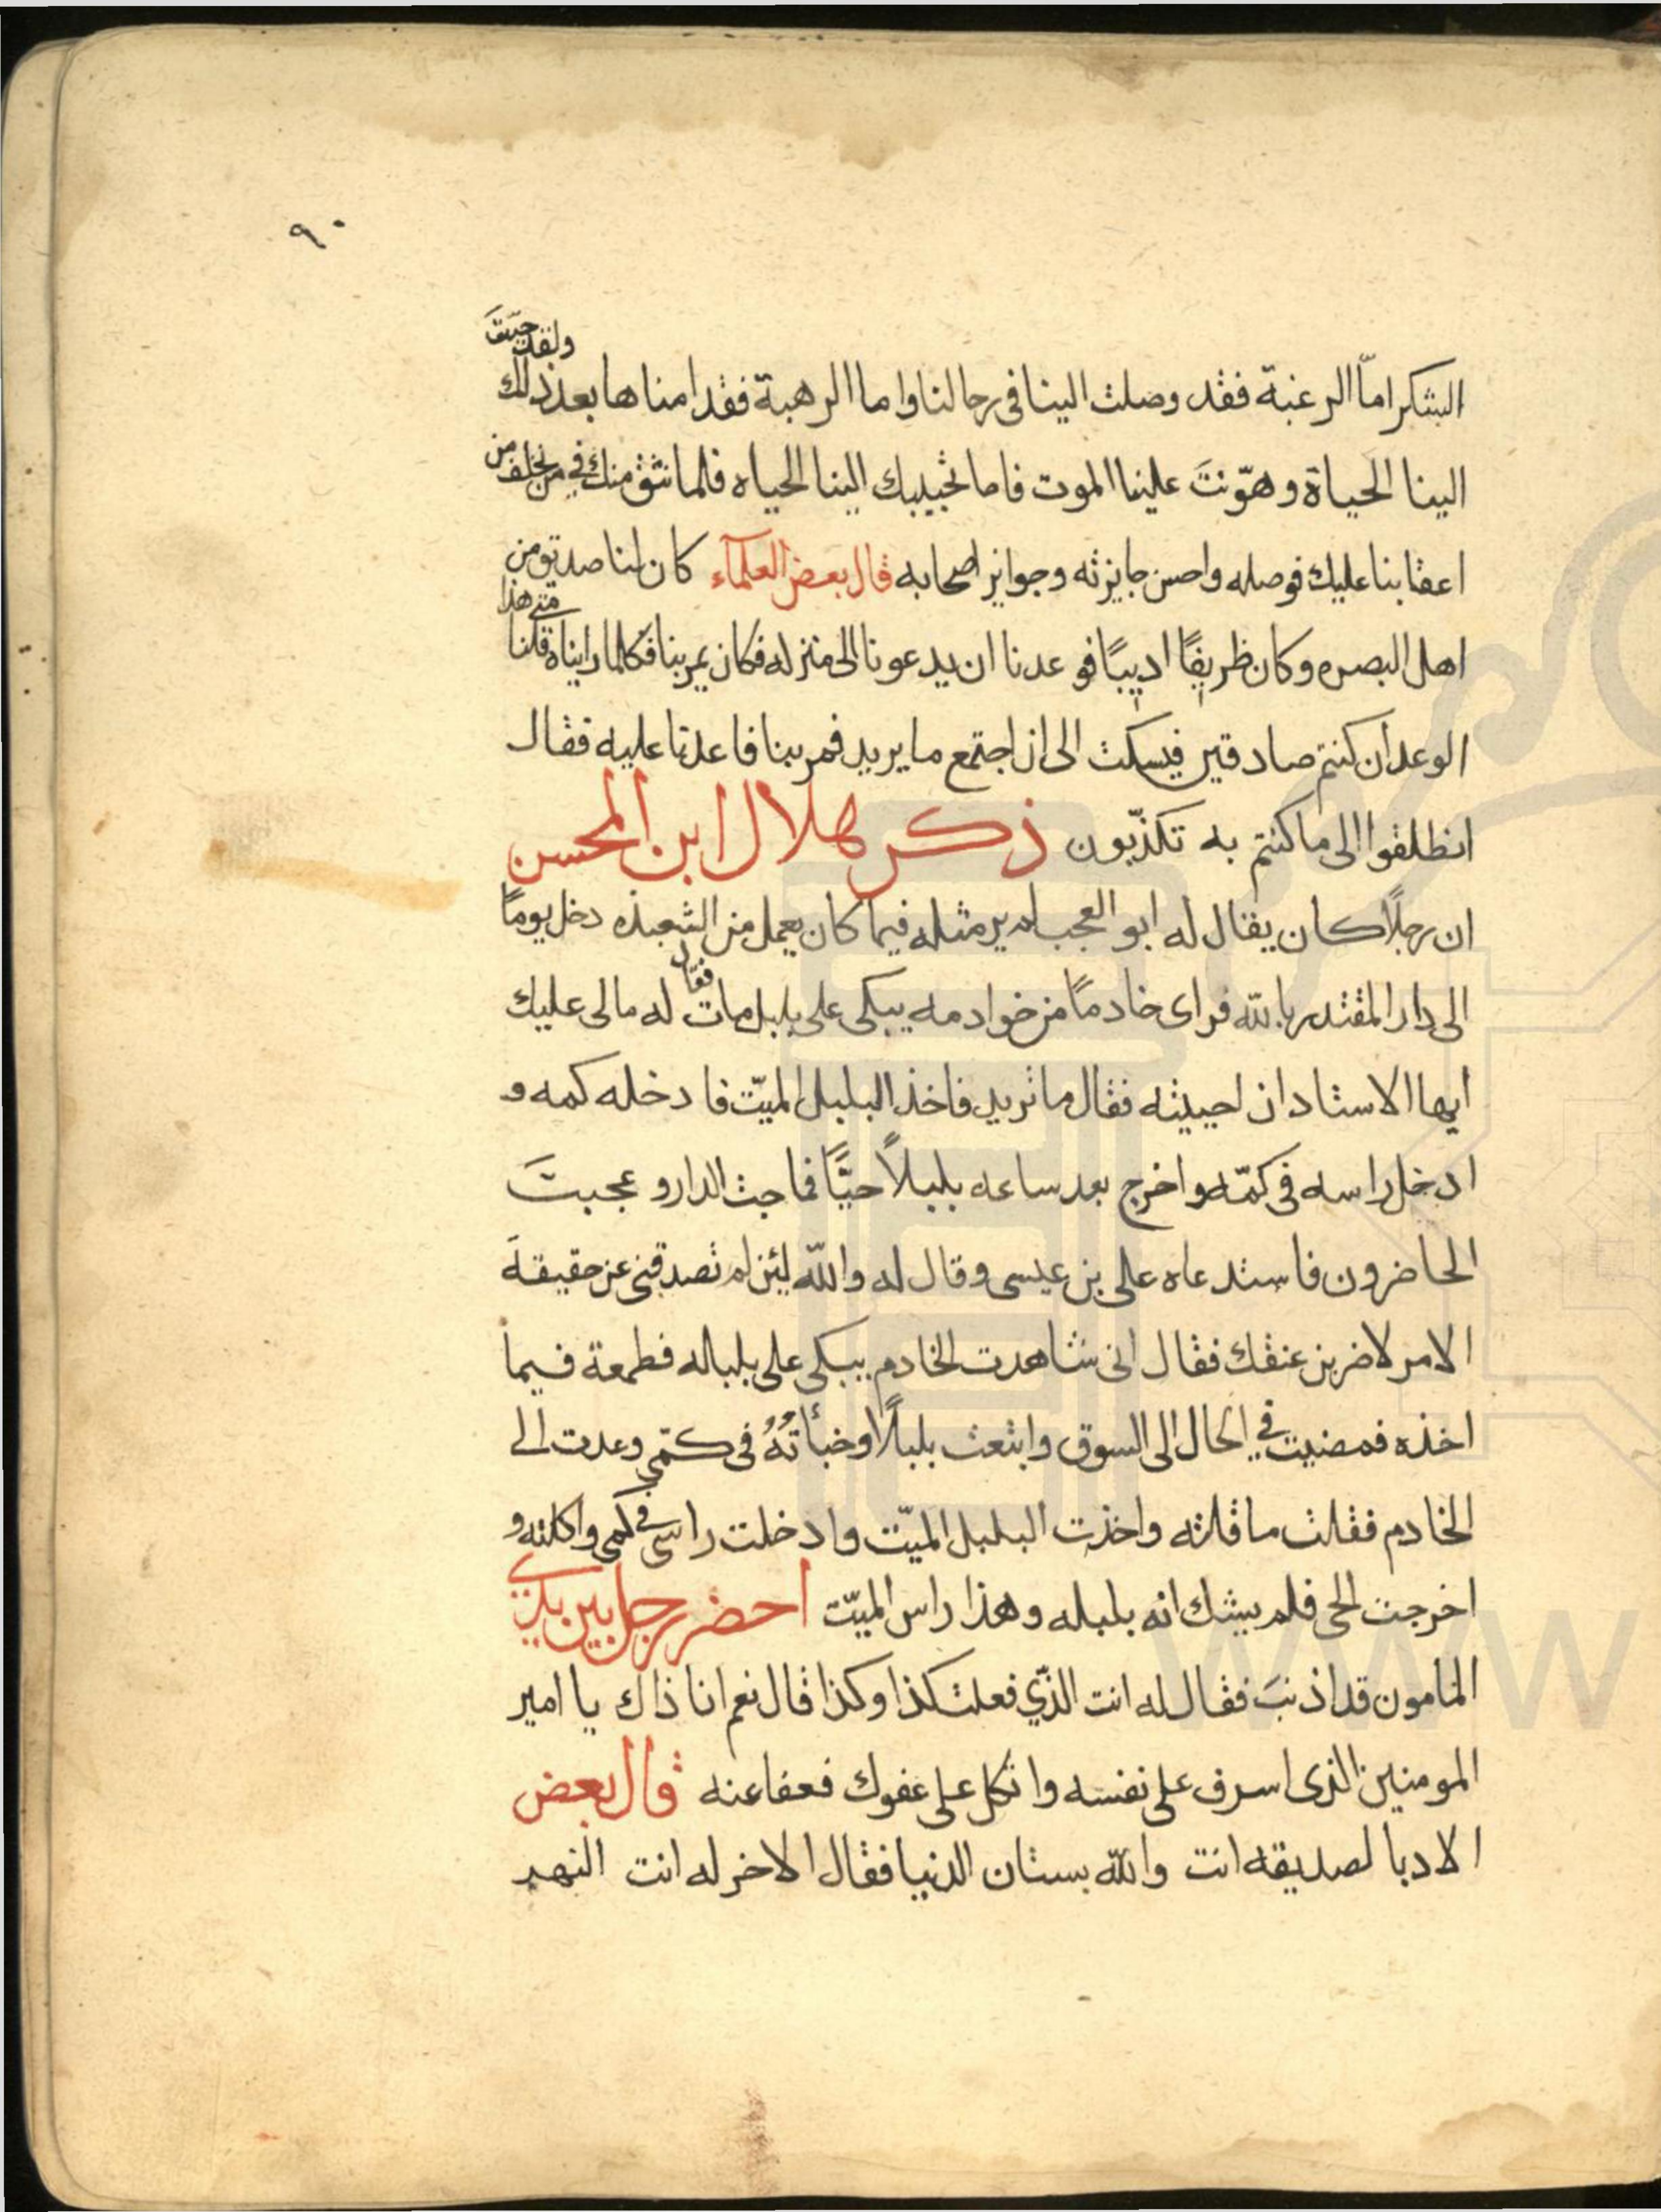 ٩٠
الشكر امّا الرغبة فقد وصلت الينا فى رحالنا واما الرهبة فقد امناها بعد ذلك ولقد حبّبتَ
الينا الحياة وهوّنتَ علينا الموت فاما تحبيبك الينا الحياه فلما نثق منك فى من نخلف من
اعقابنا عليك فوصله واحسن جايزته وجوايز اصحابه قال بعض العلمآء كان لنا صديق من
اهل البصره وكان ظريفًا اديبًا فوعدنا ان يدعونا الى منزله فكان يمر بنا فكلما رايناه قلنا متى هذا
الوعد ان كنتم صادقين فيسكت الى ان اجتمع ما يريد فمر بنا فاعدنا عليه فقال
انطلقوا الى ما كنتم به تكذّبون ذكر هلال ابن المحسن
ان رجلًا كان يقال له ابو العجب لم ير مثله فيما كان يعمل من الشعبذه دخل يومًا
الى دار المقتدر بالله فراى خادمًا من خوادمه يبكى على بلبل مات فقال له مالى عليك
ايها الاستاد ان احييته فقال ما تريد فاخذ البلبل الميّت فادخله كمه و
ادخل راسه فى كمّه واخرج بعد ساعه بلبلاً حيًّا فماجت الدار و عجبتَ
الحاضرون فاستدعاه على بن عيسى وقال له والله لئن لم تصدقنى عن حقيقة
الامر لاضربن عنقك فقال انى شاهدت الخادم يبكى على بلباله فطمعة فيما
اخذه فمضيت فى الحال الى السوق وابتعت بلبلًا وخبأتُهُ فى كمّى وعدت الى
الخادم فقلت ما قلته واخذت البلبل الميّت وادخلت راسى فى كمى واكلته و
اخرجت الحى فلم يشك انه بلبله وهذا راس الميّت احضر رجل بين يدى
المامون قد اذنبَ فقال له انت الذّي فعلت كذا وكذا قال نعم انا ذاك يا امير
المومنين الذى اسرف على نفسه واتكل على عفوك فعفا عنه قال بعض
الادبا لصديقه انت والله بستان الدنيا فقال الاخر له انت النهر